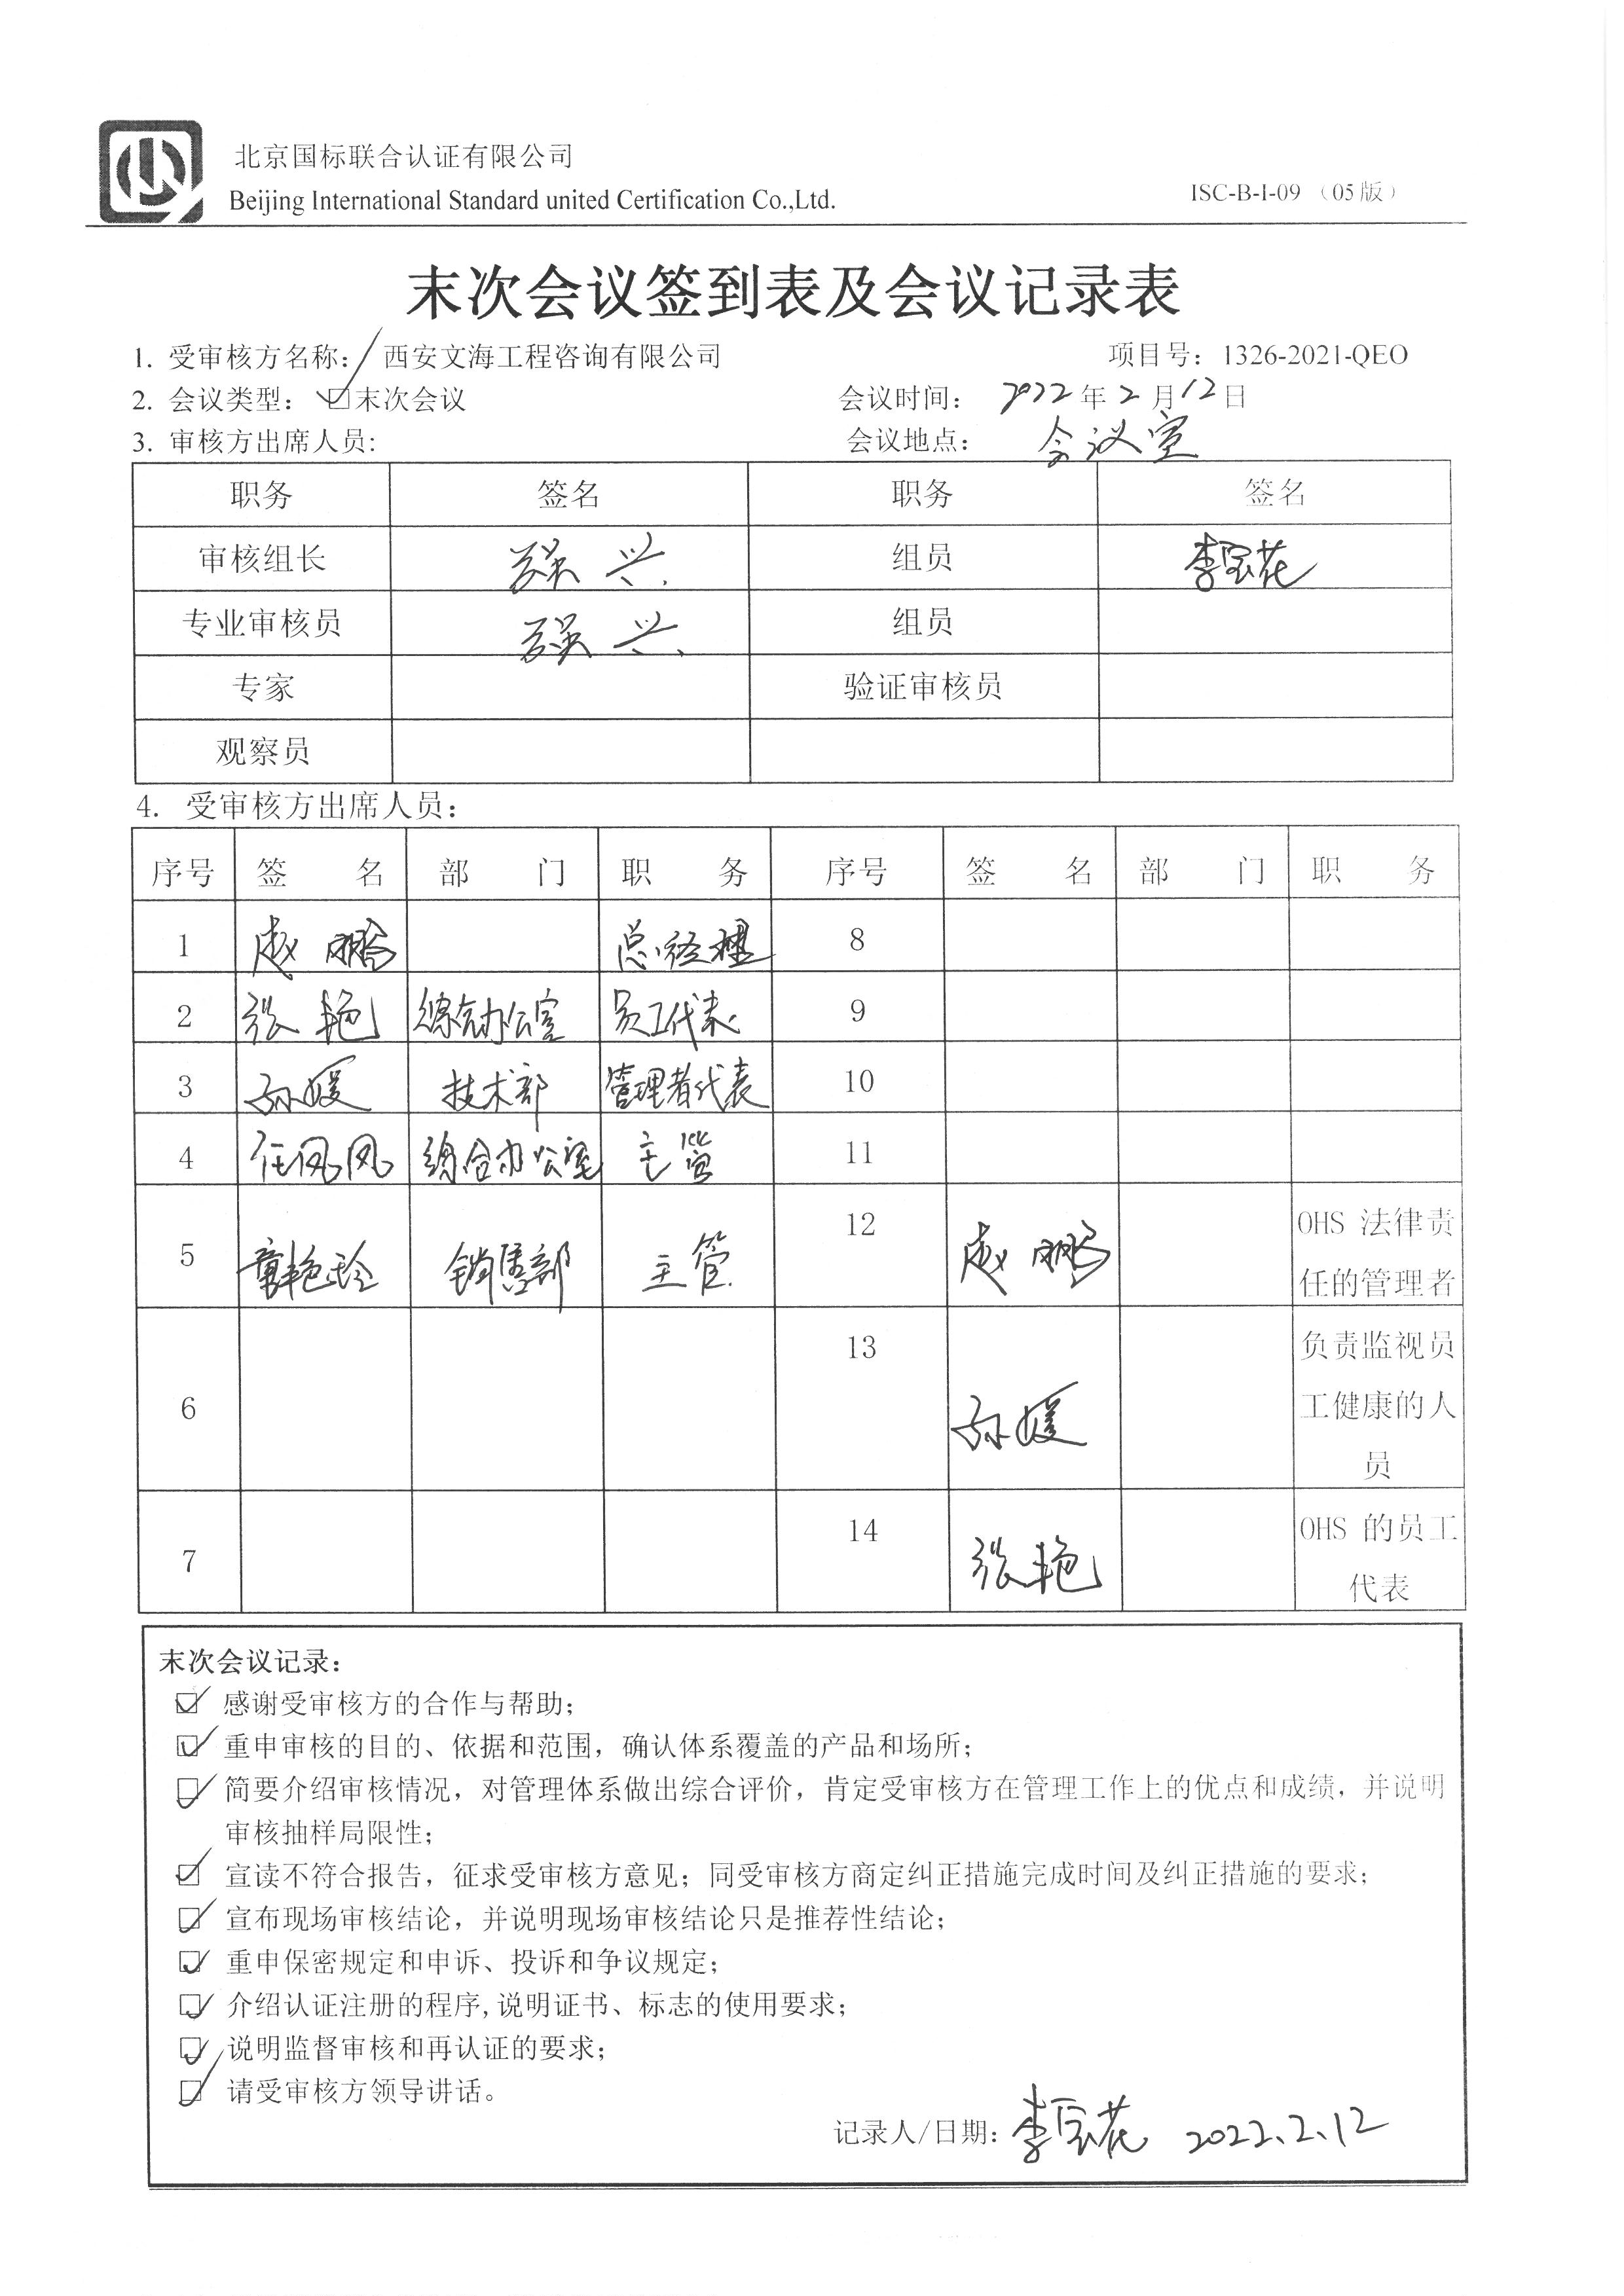 北京国标联合认证有限公司
Beijing International Standard united Certification Co.,Ltd.
ISC-B-I-09（05版）
末次会议签到表及会议记录表
1. 受审核方名称: 西安文海工程咨询有限公司 项目号: 1326-2021-QEO
2. 会议类型: ☑末次会议 会议时间: 2022年2月12日
3. 审核方出席人员: 会议地点: 会议室
职务 签名 职务 签名
审核组长 强兴 组员 李宝花
专业审核员 强兴 组员
专家 验证审核员
观察员
4. 受审核方出席人员:
序号 签 名 部 门 职 务 序号 签 名 部 门 职 务
1 赵鹏 总经理 8
2 张艳 综合办公室 员工代表 9
3 孙媛 技术部 管理者代表 10
4 任凤凤 综合办公室 主管 11
5 童艳玲 销售部 主管 12 赵鹏 OHS 法律责
任的管理者
6 13 孙媛 负责监视员
工健康的人
员
7 14 张艳 OHS 的员工
代表
末次会议记录:
☑ 感谢受审核方的合作与帮助;
☑ 重申审核的目的、依据和范围，确认体系覆盖的产品和场所;
☑ 简要介绍审核情况，对管理体系做出综合评价，肯定受审核方在管理工作上的优点和成绩，并说明
审核抽样局限性;
☑ 宣读不符合报告，征求受审核方意见；同受审核方商定纠正措施完成时间及纠正措施的要求;
☑ 宣布现场审核结论，并说明现场审核结论只是推荐性结论;
☑ 重申保密规定和申诉、投诉和争议规定;
☑ 介绍认证注册的程序,说明证书、标志的使用要求;
☑ 说明监督审核和再认证的要求;
☑ 请受审核方领导讲话。
记录人/日期: 李宝花 2022.2.12